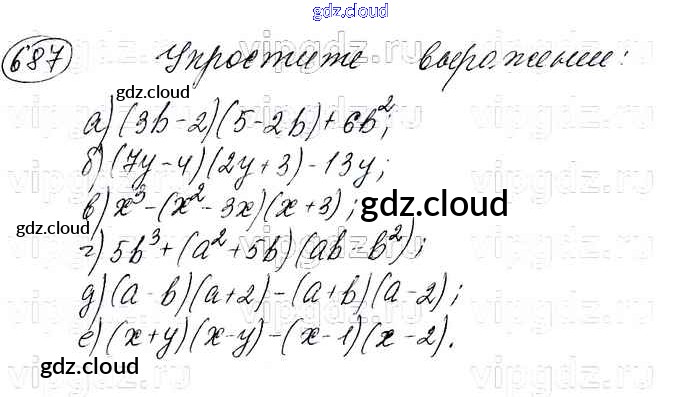 gdz.cloud
687 Упростите выражение:
gdz.cloud
а) (3b-2)(5-2b)+6b²;
б) (7y-4)(2y+3)-13y;
в) x³-(x²-3x)(x+3); gdz.cloud
gdz.cloud
г) 5b³+(a²+5b)(ab-b²);
д) (a-b)(a+2)-(a+b)(a-2);
е) (x+y)(x-y)-(x-1)(x-2).
gdz.cloud
gdz.cloud
vipgdz.ru